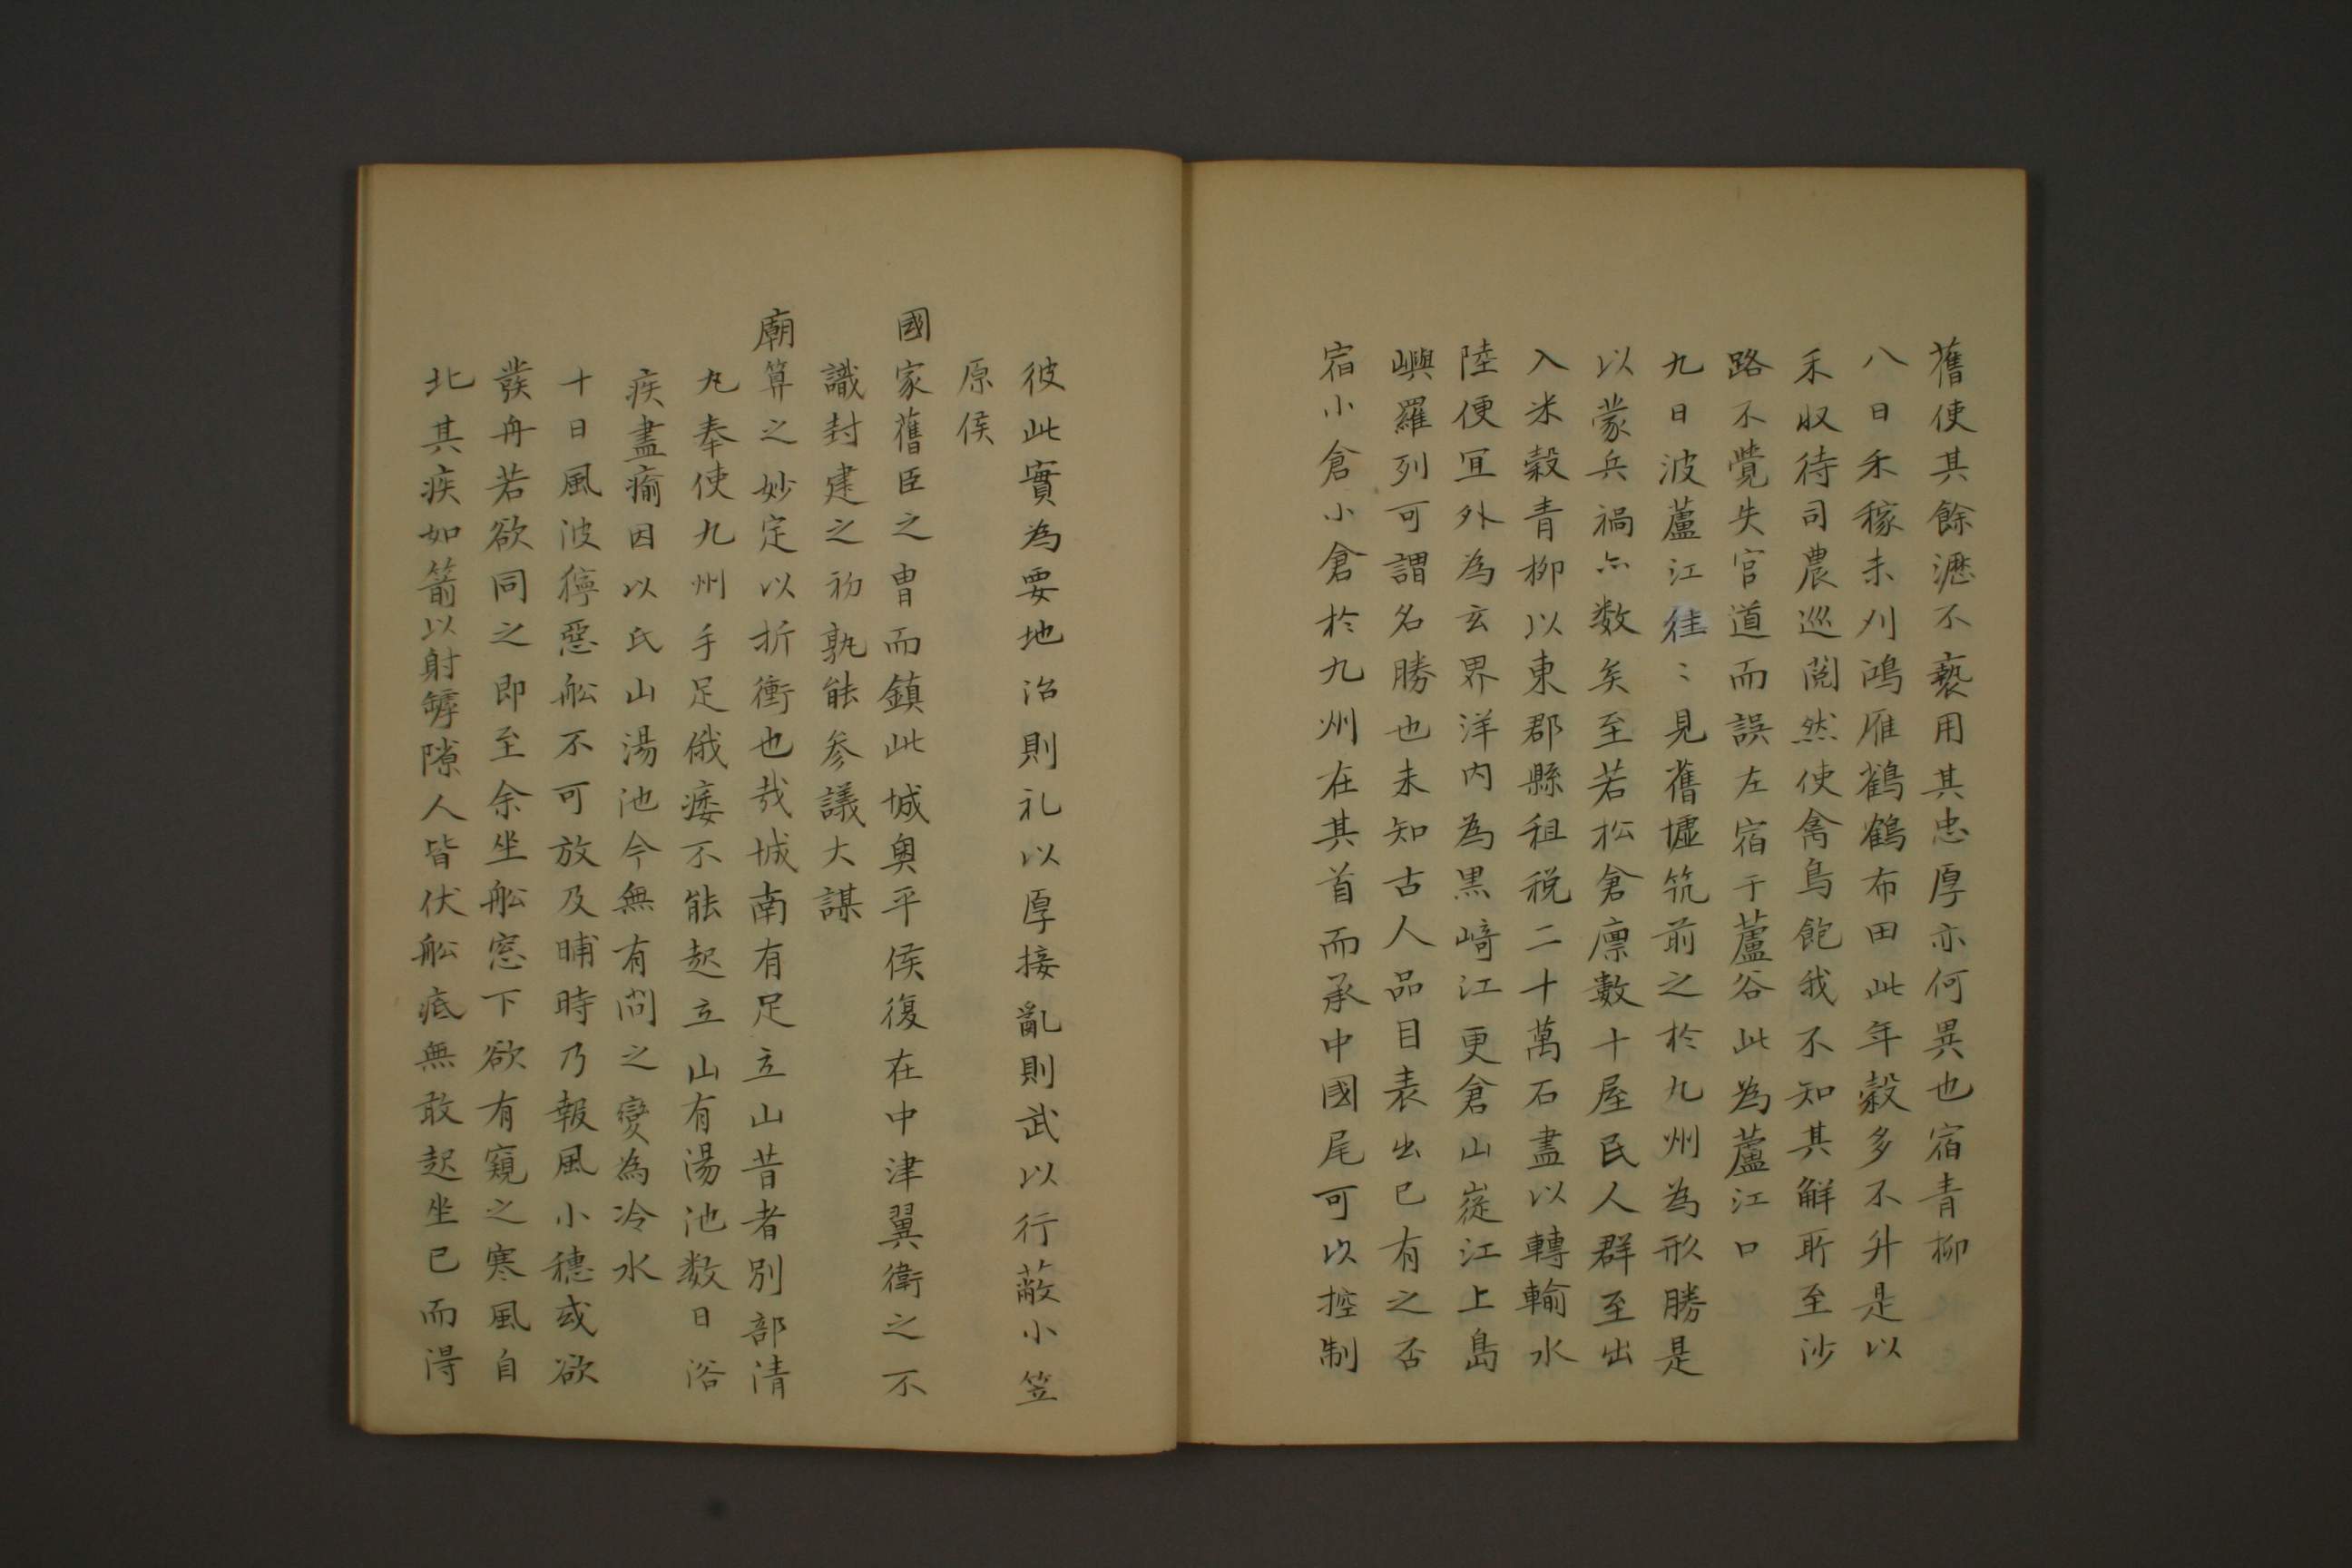 舊使其餘瀝不褻用其忠厚亦何異也宿青柳
八日禾稼未刈鴻雁鸖鶴布田此年穀多不升是以
禾收待司農巡閲然使禽鳥飽我不知其解所至沙
路不覺失官道而誤左宿于蘆谷此為蘆江口
九日波蘆江往〻見舊墟筑前之於九州為形勝是
以蒙兵禍亦数矣至若松倉廩數十屋民人群至出
入米穀青柳以東郡縣租税二十萬石盡以轉輸水
陸便冝外為玄界洋内為黒﨑江更倉山嵸江上島
嶼羅列可謂名勝也未知古人品目表出已有之否
宿小倉小倉於九州在其首而承中國尾可以控制
彼此實為要地治則礼以厚接亂則武以行蔽小笠
原侯
國家舊臣之冑而鎮此城奥平侯復在中津翼衛之不
識封建之初孰能参議大謀
廟算之妙定以折衝也哉城南有足立山昔者別部清
丸奉使九州手足俄痿不能起立山有湯池数日浴
疾盡痛因以氏山湯池今無有問之變為冷水
十日風波獰惡舩不可放及晡時乃報風小穩或欲
發舟若欲同之即至余坐舩窓下欲有窺之寒風自
北其疾如箭以射罅隙人皆伏舩底無敢起坐已而得